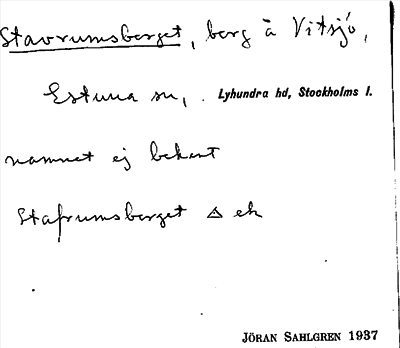 Stavrumsberget, berg å Vitsjö,
Estuna sn, . Lyhundra hd, Stockholms l.
namnet ej bekant
Stafrumsberget △ ek
JÖRAN SAHLGREN 1937